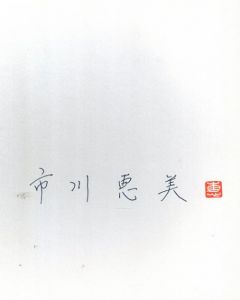 市川恵美
恵